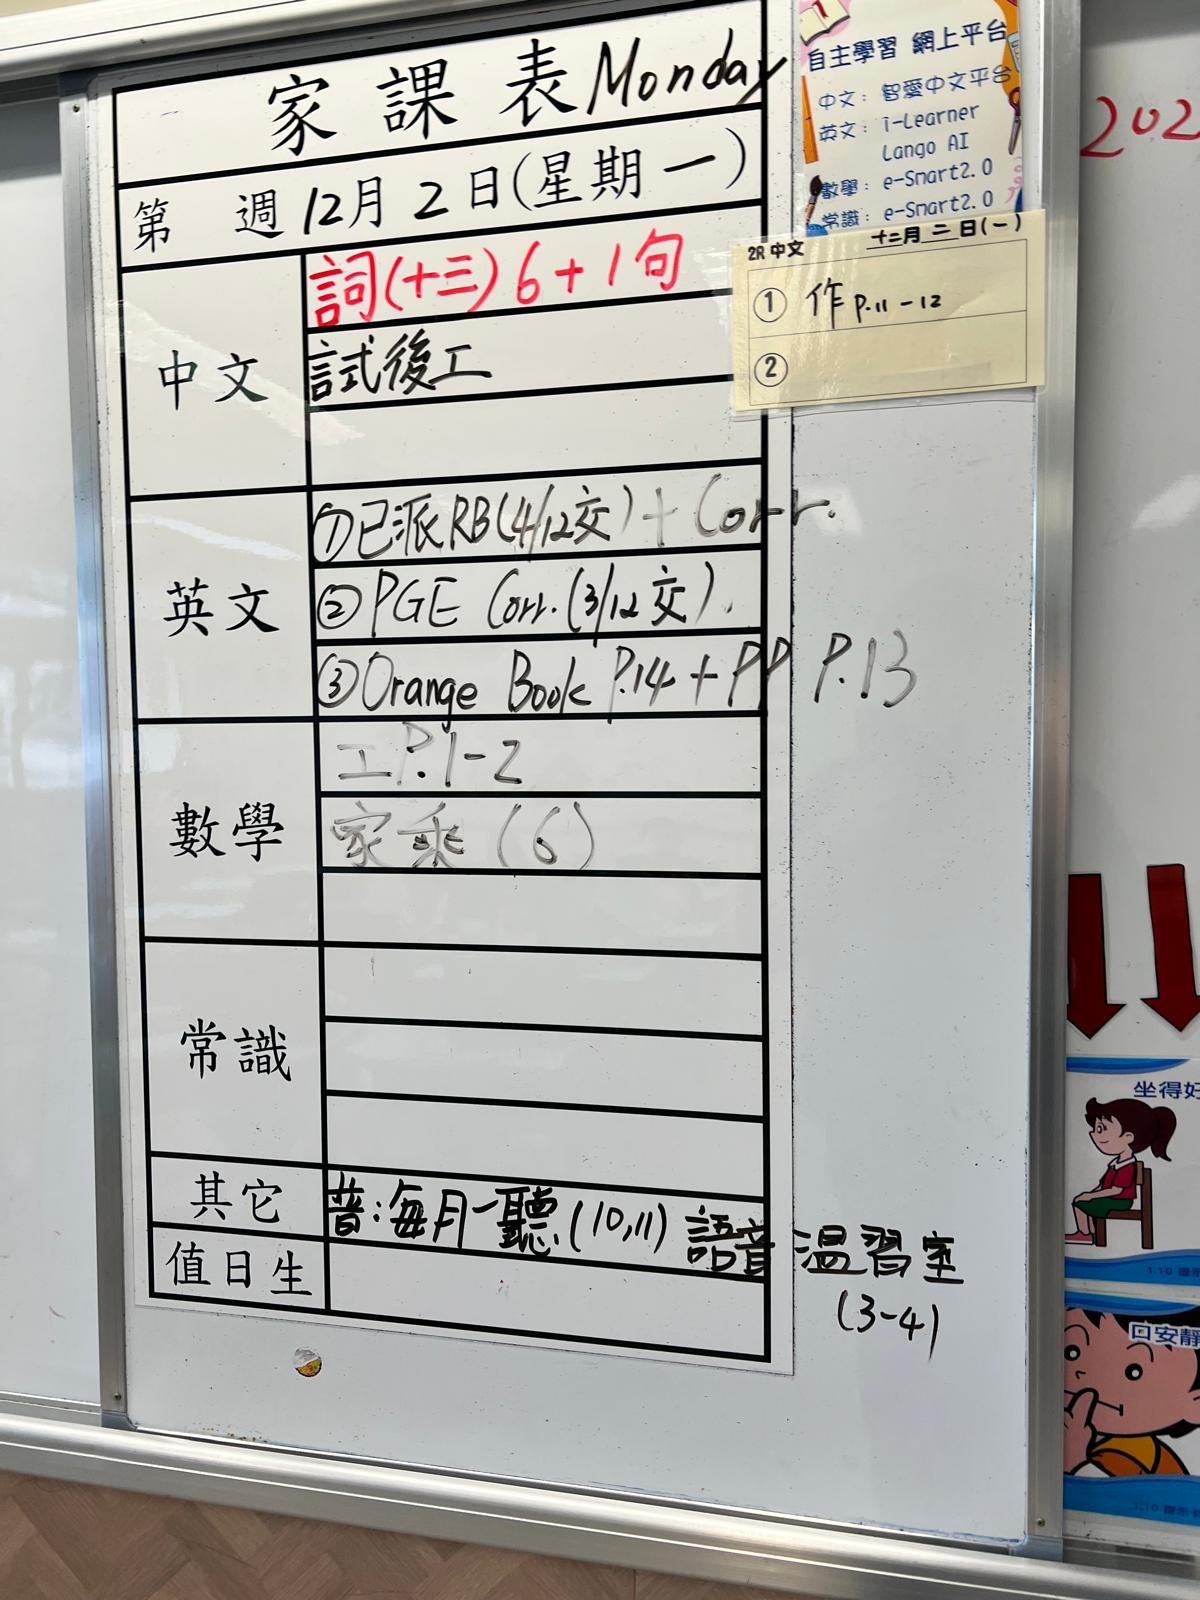 家課表 Monday
第 週 12月 2 日(星期一)
中文
詞(十三) 6 + 1句
試後工
英文
①已派RB(4/12交) + Corr.
②PGE Corr. (3/12交).
③Orange Book P.14 + PP P.13
數學
工P.1-2
家乘(6)
常識
其它
普:每月一聽(10,11) 語音温習室
(3-4)
值日生
自主學習 網上平台
中文: 智愛中文平台
英文: i-Learner
Lango AI
數學: e-Smart2.0
常識: e-Smart2.0
2R 中文 十二月 二 日(一)
① 作 P.11-12
②
202
坐得好
1.10 提示
口安靜
1.10 提示